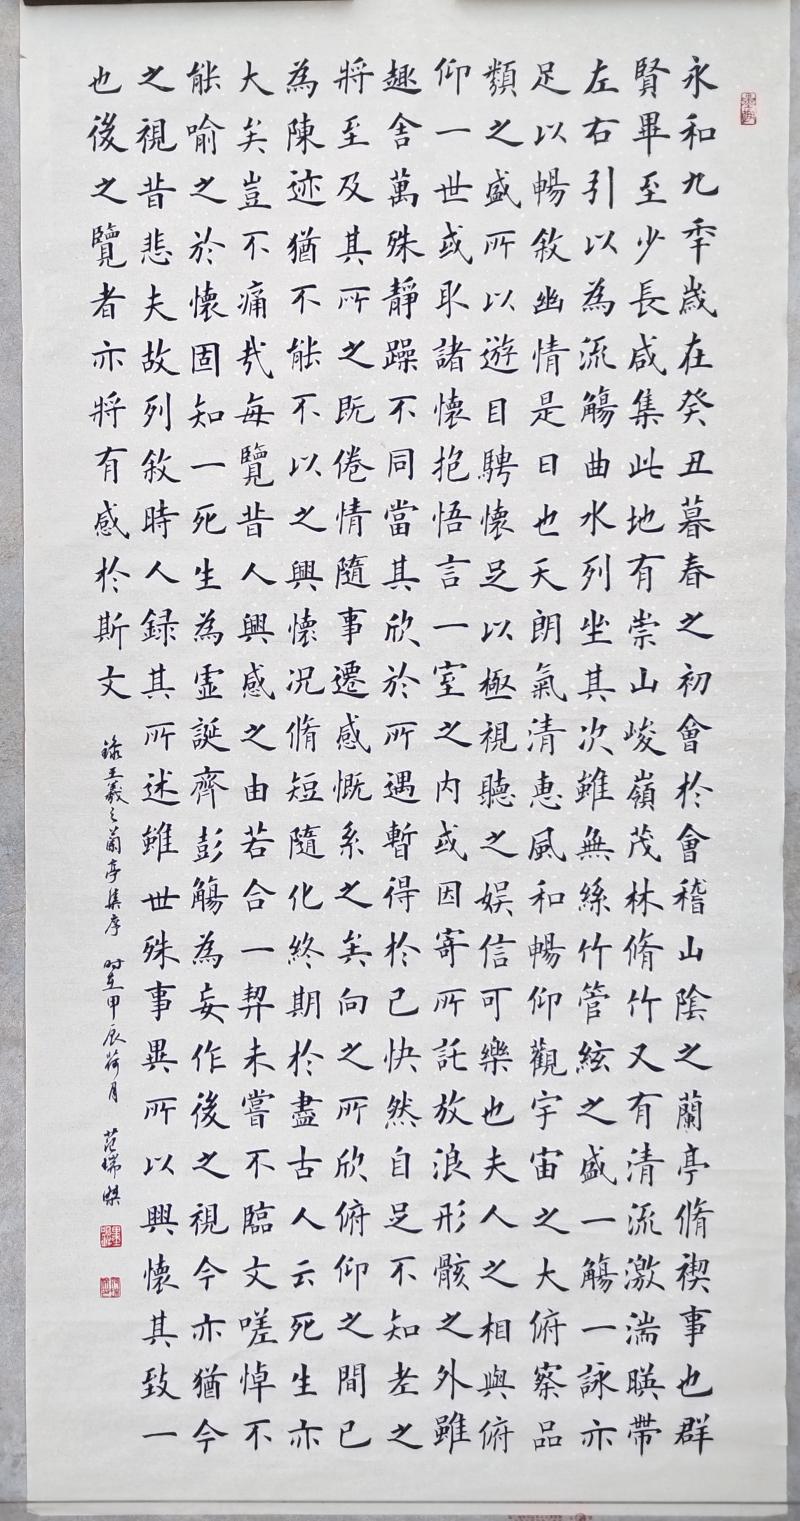 永和九秊歲在癸丑暮春之初會於會稽山陰之蘭亭脩禊事也群
賢畢至少長咸集此地有崇山峻嶺茂林脩竹又有清流激湍暎帶
左右引以為流觴曲水列坐其次雖無絲竹管絃之盛一觴一詠亦
足以暢敘幽情是日也天朗氣清惠風和暢仰觀宇宙之大俯察品
類之盛所以遊目騁懷足以極視聽之娛信可樂也夫人之相與俯
仰一世或取諸懷抱悟言一室之内或因寄所託放浪形骸之外雖
趣舍萬殊靜躁不同當其欣於所遇暫得於己快然自足不知老之
將至及其所之既倦情隨事遷感慨系之矣向之所欣俯仰之間已
為陳迹猶不能不以之興懷况脩短隨化終期於盡古人云死生亦
大矣豈不痛哉每覽昔人興感之由若合一契未嘗不臨文嗟悼不
能喻之於懷固知一死生為虛誕齊彭觴為妄作後之視今亦猶今
之視昔悲夫故列敘時人録其所述雖世殊事異所以興懷其致一
也後之覽者亦將有感於斯文
錄王羲之蘭亭集序 时在甲辰荷月 范瑞